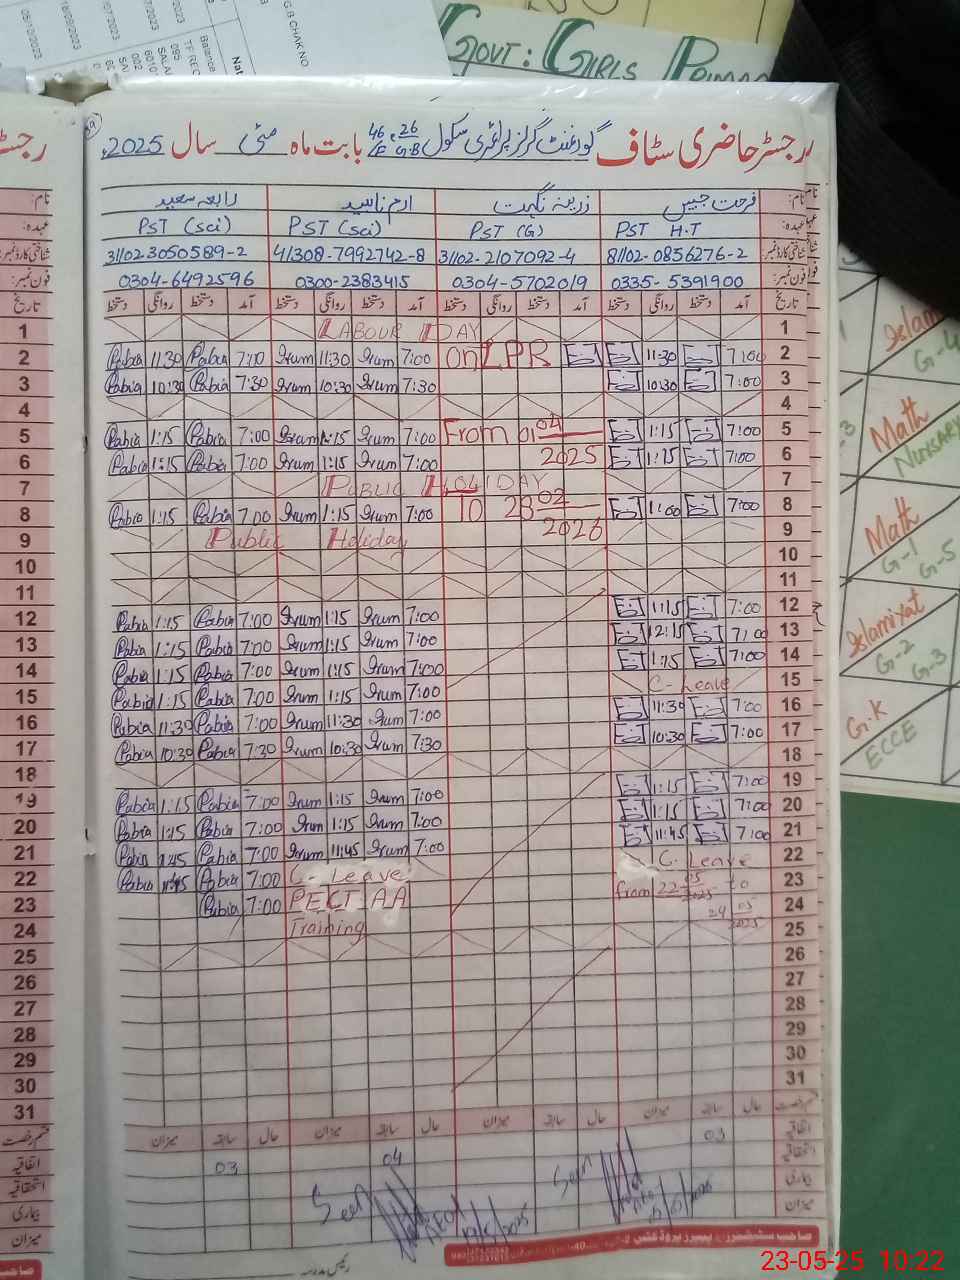 G B CHAK NO
GOVT: GIRLS
رجسٹر حاضری سٹاف گورنمنٹ گرلز پرائمری سکول 46/F 26 G.B بابت ماہ مئی سال 2025ء
نام: فرحت جبیں زرینہ نگہت ارم ناہید رابعہ سعید
عہدہ: PST H.T PST (G) PST (Sci) PST (Sci)
شناختی کارڈ نمبر: 81102-0856276-2 31102-2107092-4 41308-7992742-8 31102 3050589-2
فون نمبر: 0335-5391900 0304-5702019 0300-2383415 0304-6492596
تاریخ آمد دستخط روانگی دستخط آمد دستخط روانگی دستخط آمد دستخط روانگی دستخط آمد دستخط روانگی دستخط
1 LABOUR DAY 1
Rabia 11:30 Rabia 7:00 Irum 11:30 Irum 7:00 on LPR 11:30 7:00 2
Rabia 10:30 Rabia 7:30 Irum 10:30 Irum 7:30 10:30 7:00 3
4 4
Rabia 1:15 Rabia 7:00 Irum 1:15 Irum 7:00 From 01 04 1:15 7:00 5
Rabia 1:15 Rabia 7:00 Irum 1:15 Irum 7:00 2025 1:15 7:00 6
7 PUBLIC HOLIDAY 7
Rabia 1:15 Rabia 7:00 Irum 1:15 Irum 7:00 TO 28 02 11:00 7:00 8
9 Public Holiday 2026 9
10 10
11 11
Rabia 1:15 Rabia 7:00 Irum 1:15 Irum 7:00 1:15 7:00 12
Rabia 1:15 Rabia 7:00 Irum 1:15 Irum 7:00 12:15 7:00 13
Rabia 1:15 Rabia 7:00 Irum 1:15 Irum 7:00 1:15 7:00 14
Rabia 1:15 Rabia 7:00 Irum 1:15 Irum 7:00 C-Leave 15
Rabia 11:30 Rabia 7:00 Irum 11:30 Irum 7:00 11:30 7:00 16
Rabia 10:30 Rabia 7:30 Irum 10:30 Irum 7:30 10:30 7:00 17
18 18
Rabia 1:15 Rabia 7:00 Irum 1:15 Irum 7:00 1:15 7:00 19
Rabia 1:15 Rabia 7:00 Irum 1:15 Irum 7:00 1:15 7:00 20
Rabia 11:45 Rabia 7:00 Irum 11:45 Irum 7:00 11:45 7:00 21
Rabia 11:45 Rabia 7:00 C-Leave C-Leave 22
Rabia 7:00 PECTAA from 22 05 2025 to 23
24 Training 24 05 2025 24
25 25
26 26
27 27
28 28
29 29
30 30
31 31
قسم رخصت حال سابقہ میزان حال سابقہ میزان حال سابقہ میزان حال سابقہ میزان
اتفاقیہ 03 04 03
استحقاقیہ
بیماری Seen Seen
میزان
رئیس مدرسہ
Islam
G-4
Math
Nursery
Math
G-1 G-5
Islamiyat
G-2 G-3
G.K
ECCE
23-05-25 10:22